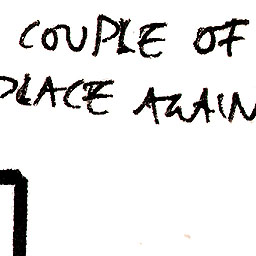 COUPLE OF
PLACE AGAIN